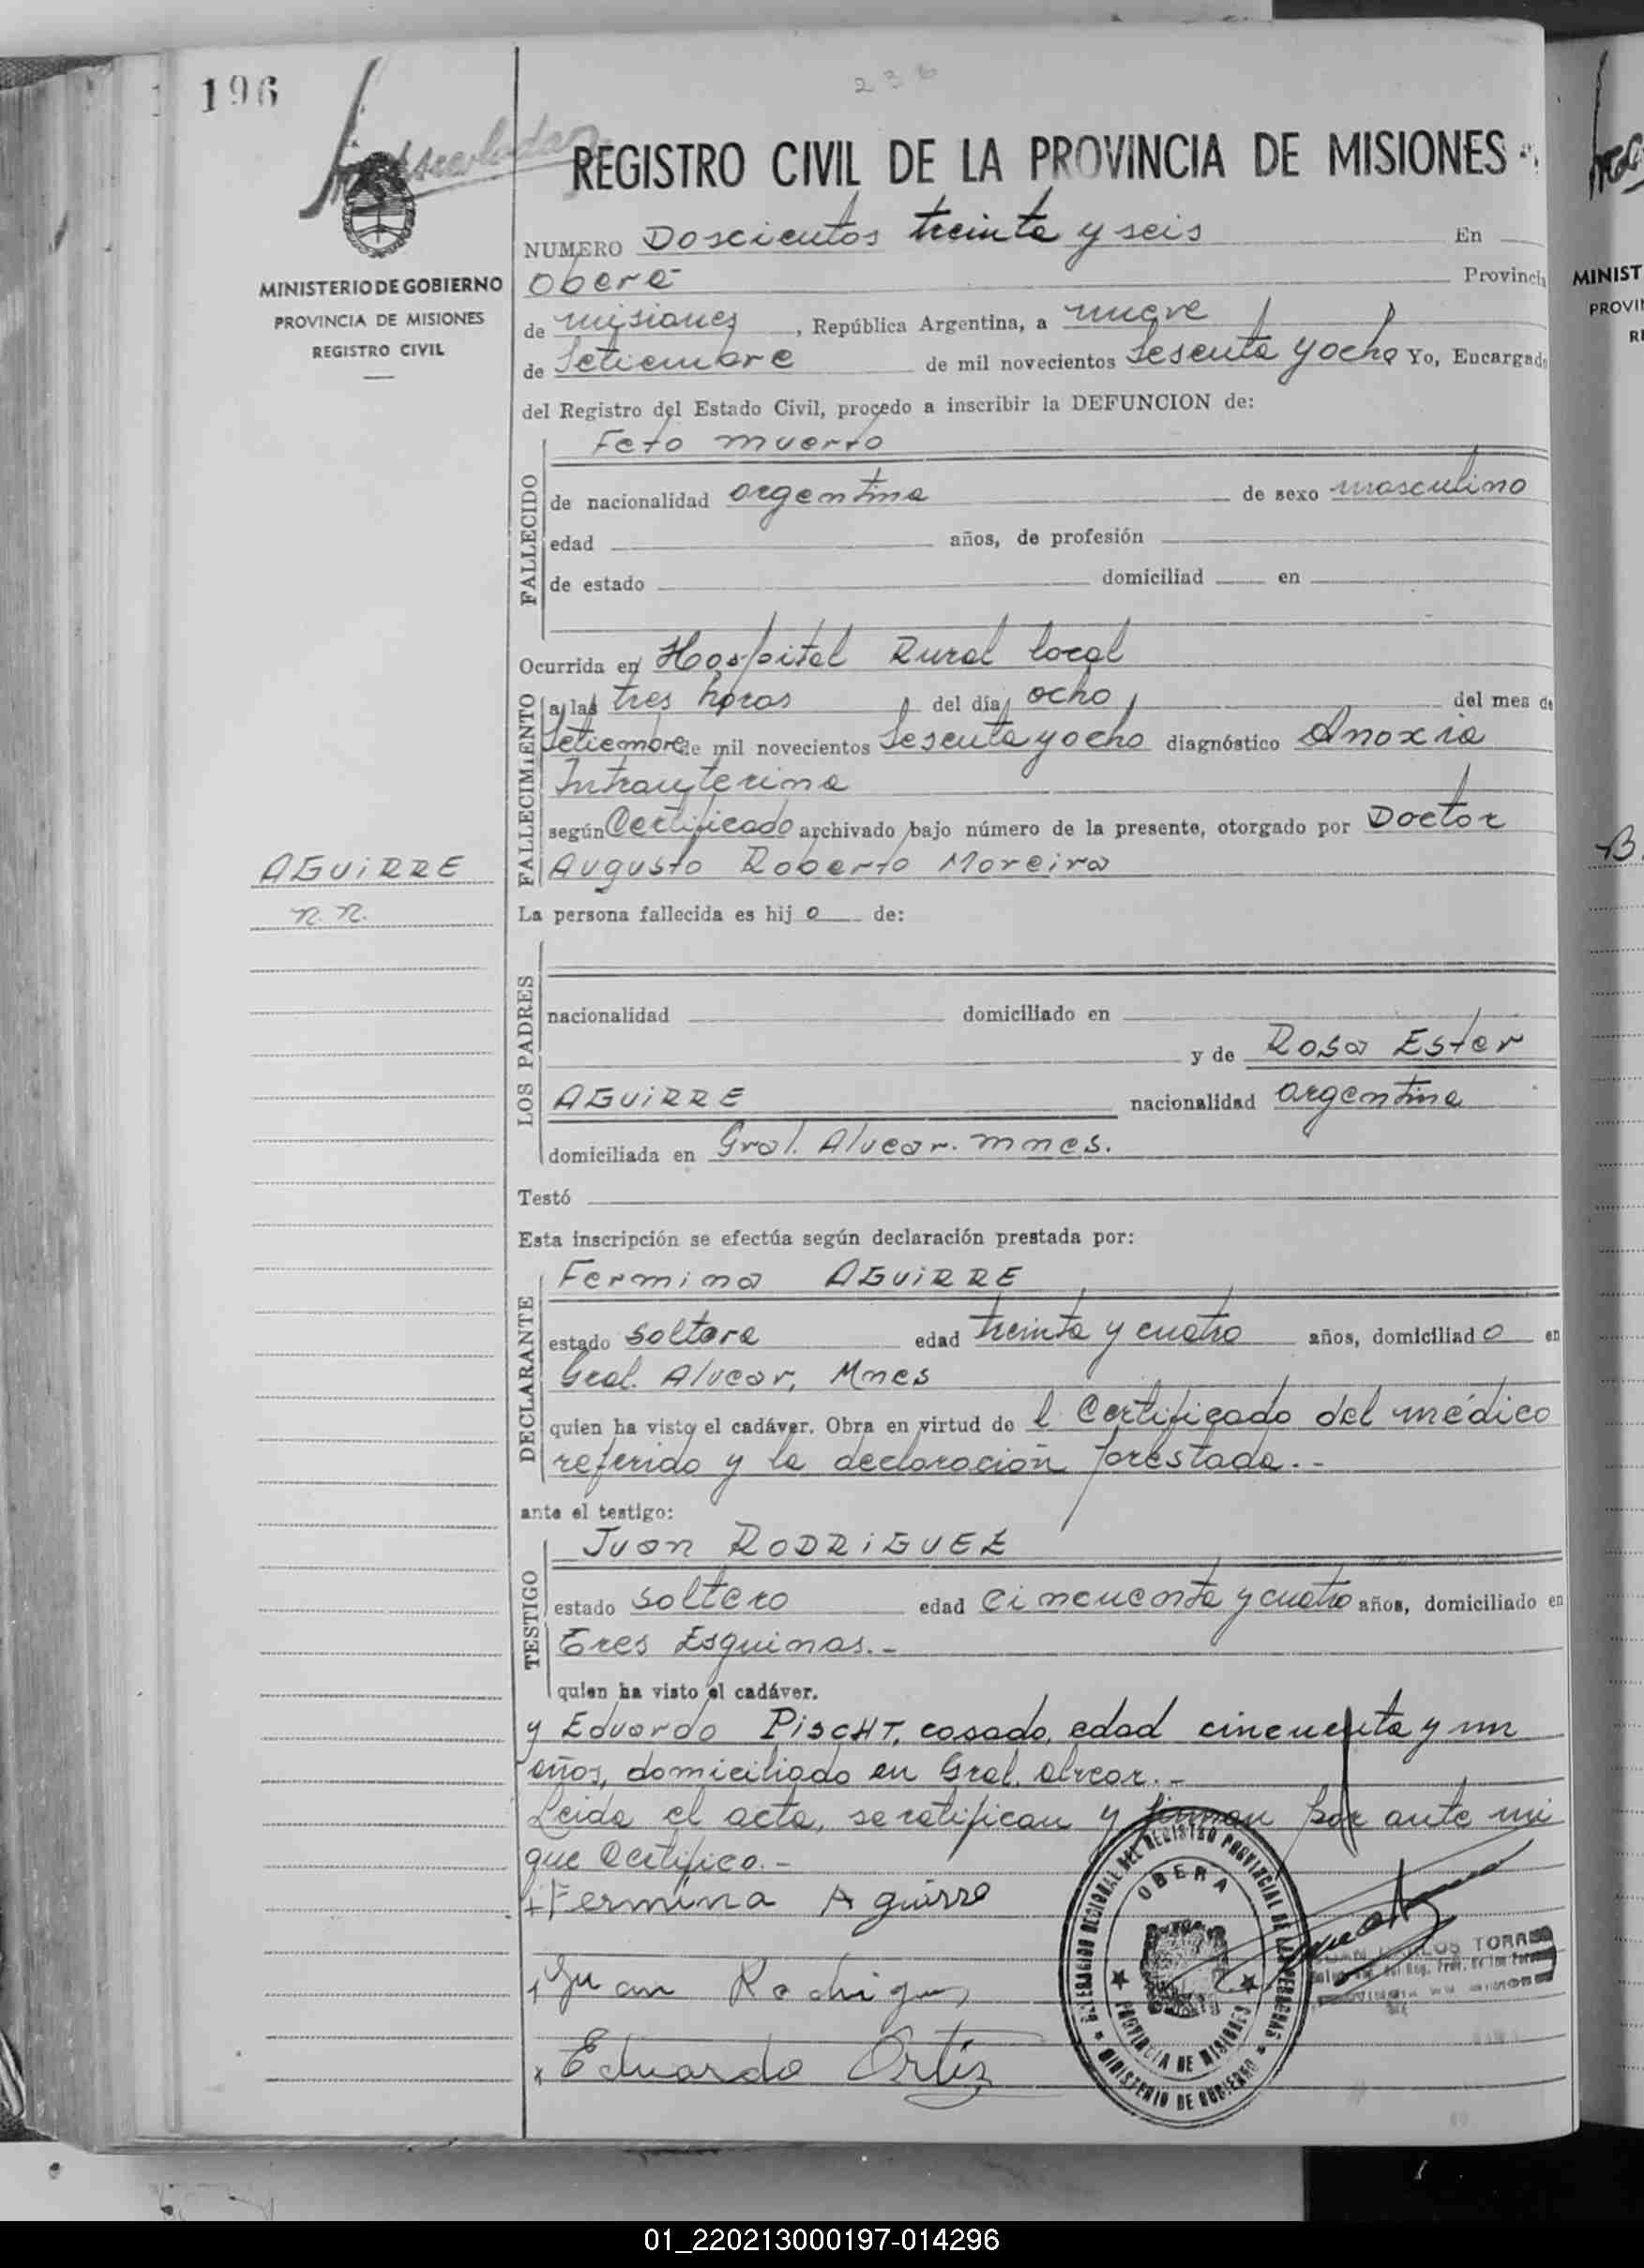 196
236
REGISTRO CIVIL DE LA PROVINCIA DE MISIONES
MINISTERIO DE GOBIERNO
PROVINCIA DE MISIONES
REGISTRO CIVIL
NUMERO Doscientos treinta y seis En
Oberá Provincia
de misiones, República Argentina, a nueve
de Setiembre de mil novecientos Sesenta y ocho Yo, Encargado
del Registro del Estado Civil, procedo a inscribir la DEFUNCION de:
FALLECIDO
Feto muerto
de nacionalidad argentina de sexo masculino
edad años, de profesión
de estado domiciliad en
Ocurrida en Hospital Rural local
FALLECIMIENTO
a las tres horas del día ocho del mes de
Setiembre de mil novecientos Sesenta y ocho diagnóstico Anoxia
Intrauterina
según Certificado archivado bajo número de la presente, otorgado por Doctor
Augusto Roberto Moreira
AGUiRRE
n.n.
La persona fallecida es hijo de:
LOS PADRES
nacionalidad domiciliado en
y de Rosa Ester
AGUiRRE nacionalidad argentina
domiciliada en Gral. Alvear. mnes.
Testó
Esta inscripción se efectúa según declaración prestada por:
DECLARANTE
Fermina AGUiRRE
estado soltera edad treinta y cuatro años, domiciliado en
Gral. Alvear, Mnes
quien ha visto el cadáver. Obra en virtud de l Certificado del médico
referido y la declaración prestada.-
ante el testigo:
TESTIGO
Juan RODRiGUEZ
estado soltero edad cincuenta y cuatro años, domiciliado en
Tres Esquinas.-
quien ha visto el cadáver.
y Eduardo PiSCHT, casado, edad cincuenta y un
años, domiciliado en Gral. alvear.-
Leida el acta, se ratifican y firman por ante mi
que Certifico.-
Fermina Aguirre
Juan Rodrigues
Eduardo Ortiz
DELEGACION REGIONAL DEL REGISTRO PROVINCIAL DE LAS PERSONAS
OBERA
PROVINCIA DE MISIONES
MINISTERIO DE GOBIERNO
JUAN CARLOS TORRES
MINIST
PROVIN
RE
01_220213000197-014296